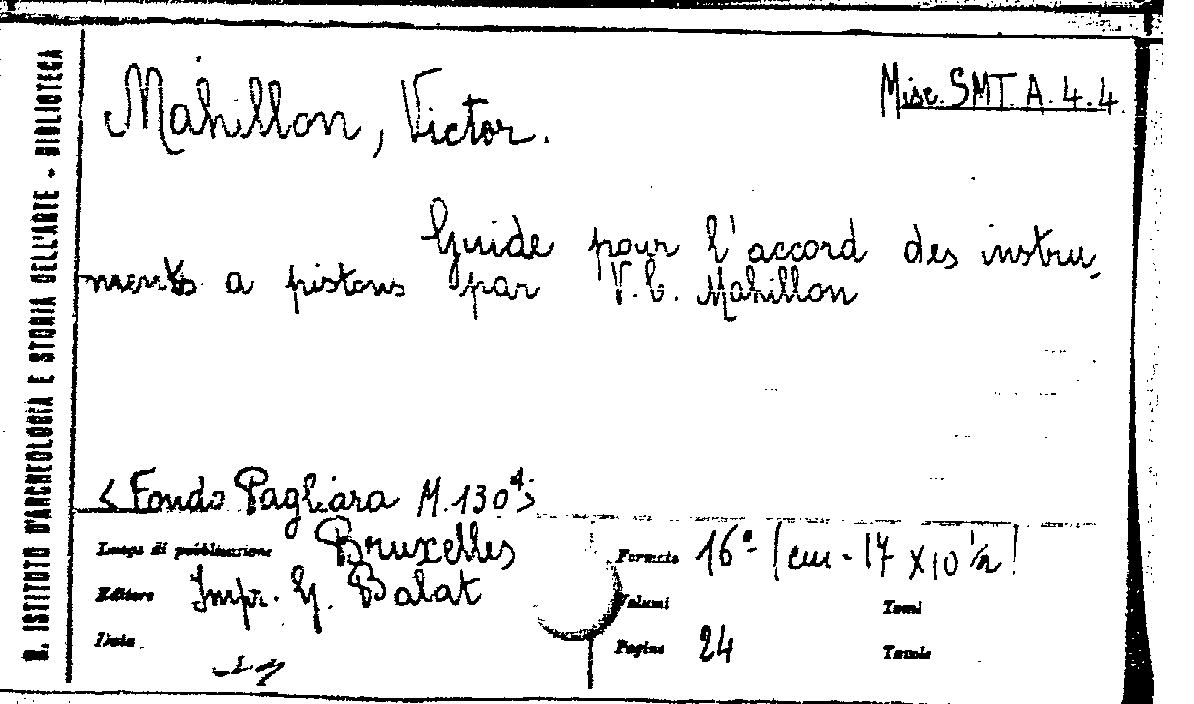 R. ISTITUTO D'ARCHEOLOGIA E STORIA DELL'ARTE - BIBLIOTECA
Mahillon, Victor.
Misc. SMT A. 4. 4
Guide pour l'accord des instru-
ments a pistons par V. C. Mahillon
< Fondo Pagliara M. 130
Luogo di pubblicazione Bruxelles
Editore Impr. G. Balat
Data
Formato 16º- [cm - 17 x 10 ½]
Volumi Tomi
Pagine 24 Tavole